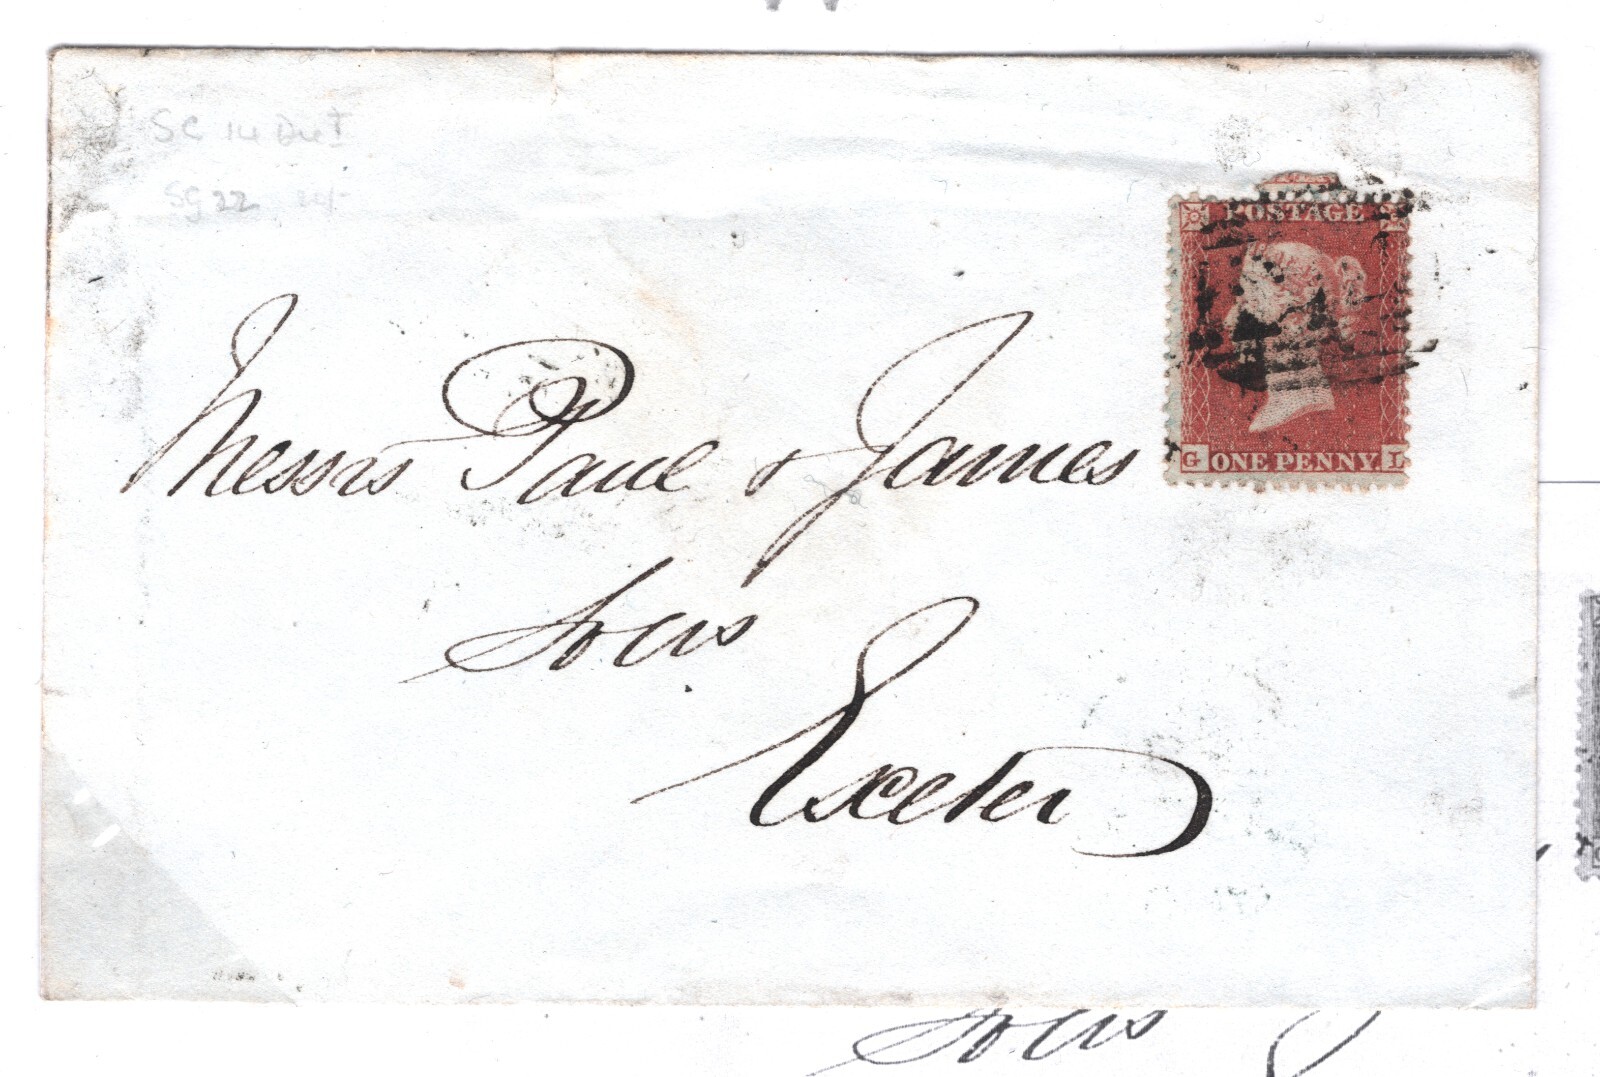 SC 14 Die I
SG 22
POSTAGE
G ONE PENNY. L
Messrs Paul & James
Solrs
Exeter
Solrs